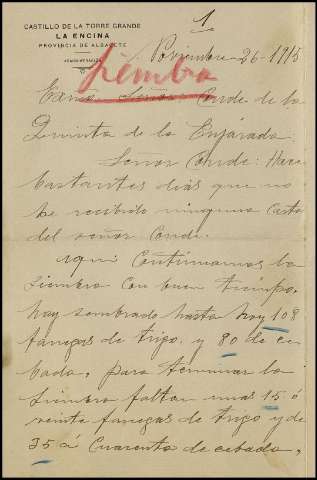 1
CASTILLO DE LA TORRE GRANDE
LA ENCINA
PROVINCIA DE ALBACETE
ADMINISTRACIÓN
Noviembre-26-1915
Siembra
Excmo Señor Conde de la
Quinta de la Enjarada.
Señor Conde: Hace
bastantes dias que no
he recibido ninguna carta
del señor Conde.
Aqui Continuamos la
siembra con buen tiempo,
hay sembrado hasta hoy 108
fanegas de trigo y 80 de ce-
bada, para terminar la
siembra faltan unas 15 ó
veinte fanegas de trigo y de
35 á Cuarenta de cebada,